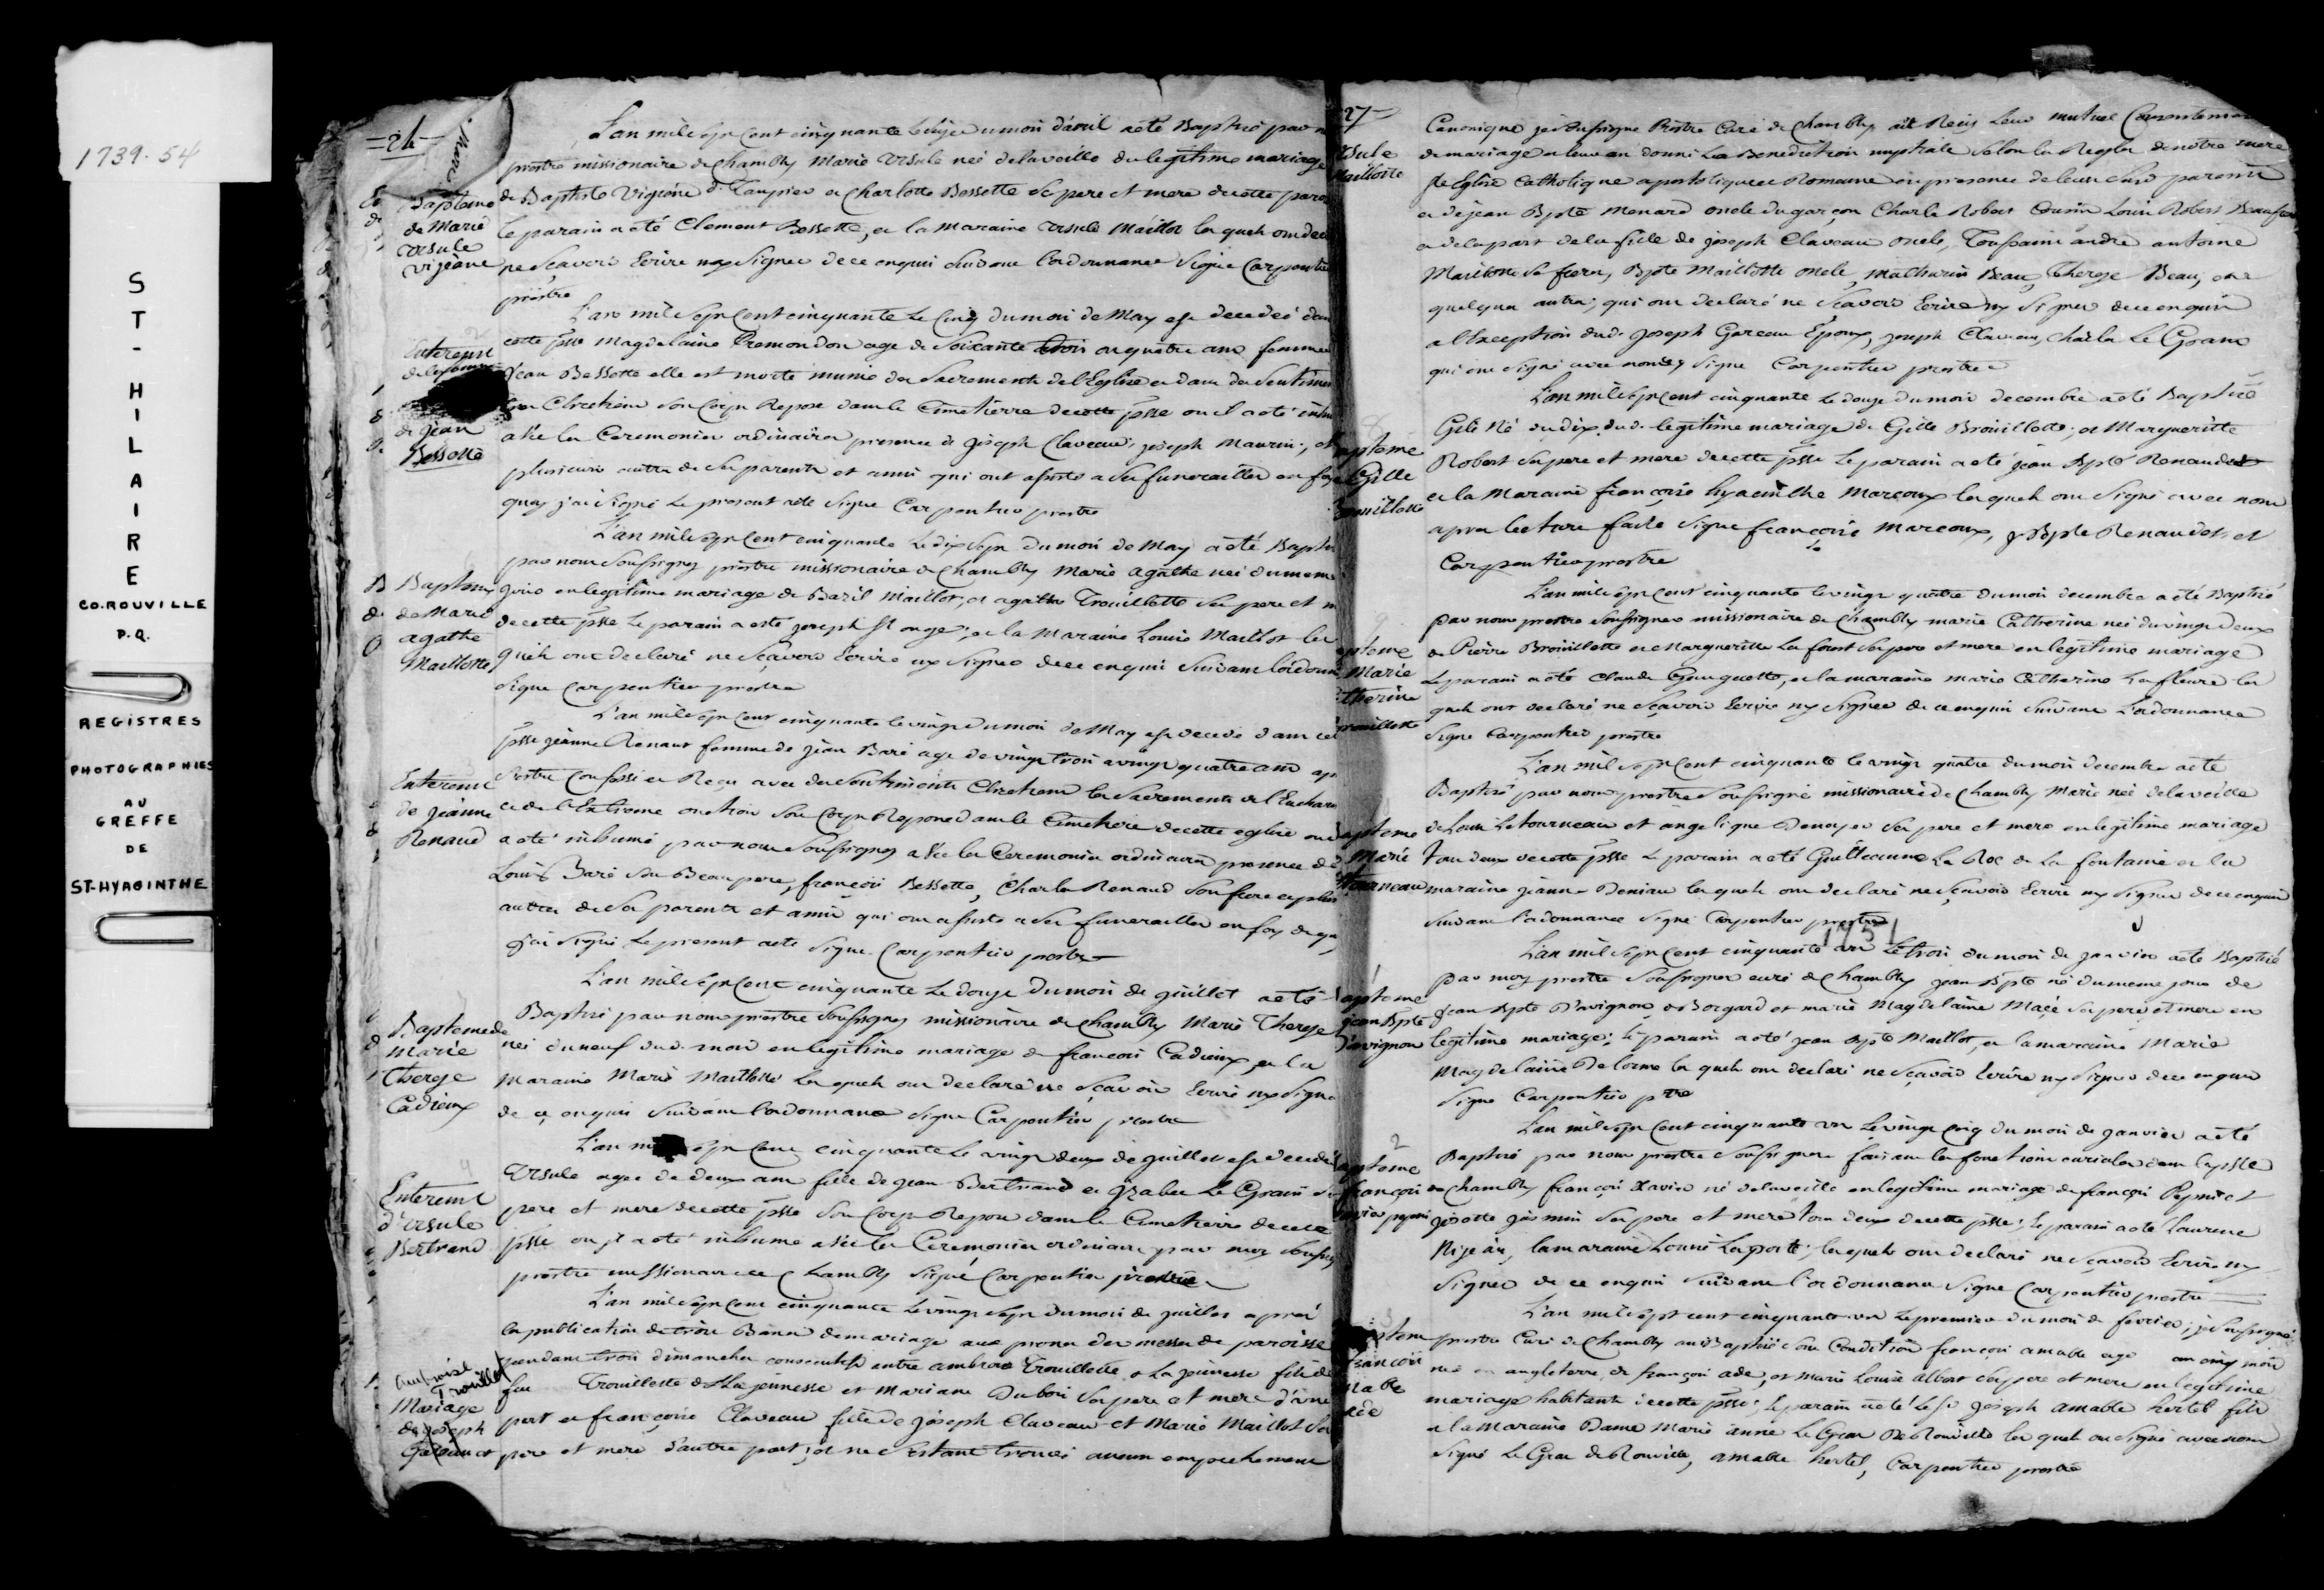 1739-54
ST-HILAIRE
CO. ROUVILLE
P.Q.
REGISTRES
PHOTOGRAPHIES
AU
GREFFE
DE
ST-HYACINTHE
L'an mile sept cent cinquante le dix du mois d'avril a eté Baptisé par
prestre missionaire de Chambly Marie Ursule neé de la veille du legitime mariage
Bapteme
de Marie
Ursule
vijeane
de Baptiste Vigeane et Charlotte Bessette se pere et mere de cette
le parain a eté Clement Bessette, et la maraine Ursule Maillot lesquels ont
ne scavoir Ecrire ny signer de ce enquis suivant l'ordonnance signé Carpentier
prestre
L'an mile sept cent cinquante le cinq du mois de May est decedeé dans
Enterement
de jean
Bessette
cette psse Magdelaine age de soixante trois ou quatre ans femme
jean Bessette elle est morte munie des sacrements de l'Eglise et dans des sentimens
Chretiens son corps Repose dans le Cimetierre de cette psse ou il a eté
avec les Ceremonies ordinaires presence de joseph Claveau, joseph Maurin, et
plusieurs autres de ses parents et amis qui ont assisté a ses funerailles en foy
quoy j'ai signé le present acte signé Carpentier prestre
L'an mile sept cent cinquante le dix sept du mois de May a eté
par nous soussignez prestre missionaire de Chambly Marie agathe neé du meme
Baptemes
de Marie
agathe
Maillotte
jour en legitime mariage de Bazil Maillot, et agathe Trouillotte ses pere et
de cette psse Le parain a esté joseph St onge, et la Maraine Louise Maillot les
quels ont declaré ne scavoir Ecrire ny signer de ce enquis suivant l'ordonn
signé Carpentier prestre
L'an mile sept cent cinquante le vingt du mois de May est decedé dans
psse jeanne Renaut femme de jean Baré age de vingt trois a vingt quatre ans
Enterement
de jeanne
Renaud
s'estre Confessé et Reçu avec des sentiments Chretiens les sacrements de l'Euchar
et de l'Extreme onction son corps Repose dans le Cimetiere de cette eglise
a eté inhumé par nous soussignez avec les Ceremonies ordinaires presence de
Louis Baré son Beau pere, françois Bessette, Charles Renaud son frere et plus
autres de ses parents et amis qui ont assisté a ses funerailles en foy de
j'ai signé Le present acte signé Carpentier prestre
L'an mile sept cent cinquante Le douze du mois de juillet a eté
Baptemede
Marie
Therese
Cadieux
Baptisé par nous prestre soussignez missionaire de Chambly Marie Therese
neé du neuf dud. mois en legitime mariage de francois Cadieux, et la
Maraine Marie Maillotte lesquels ont declaré ne scavoir Ecrire ny signer
de ce enquis suivant l'ordonnance signé Carpentier prestre
L'an mile sept cent cinquante le vingt deux de juillet est decedé
Enterement
d'ursule
Bertrand
Ursule agee de deux ans fille de jean Bertrand et Izabel Le Grain
pere et mere de cette psse son Corps Repose dans le Cimetierre de cette
psse ou il a eté inhumé avec les Ceremonies ordinaires par moy
prestre missionaire de Chambly signé Carpentier prestre
L'an mile sept cent cinquante le vingt sept du mois de juillet apres
la publication de trois Bans de mariage aux prones des messes de paroisse
pendant trois dimanches consecutifs entre ambroise Trouillotte La jeunesse fils de
ambroise
Trouillet
Mariage
de joseph
et
feu Trouillette dit La jeunesse et Mariane Dubois ses pere et mere d'une
part et françoise Claveau fille de joseph Claveau et Marie Maillot ses
pere et mere d'autre part; et ne s'estant trouvé aucun empechement
27
Ursule
Maillotte
Canonique je soussigné Prestre Curé de Chambly ait Receü Leur mutuel Consentement
de mariage et leur en donné La Benediction nuptiale selon les Regles de nôtre mere
Ste Eglise Catholique apostolique et Romaine en presence de leurs parents
et de jean Bpte Menard oncle du garçon Charle Robert Cousin Louis Robert
et de la part de la fille de joseph Claveau oncle, Toussaint andré antoine
Maillotte sa frere, Bpte Maillotte oncle, Mathurin Beau, Therese Beau, et
quelques autres; qui ont declaré ne scavoir Ecrire ny signer de ce enquis
a l'Exception dud. joseph Gareau Epoux, joseph Claveau, Charles Le Grain
qui ont signé avec nous signé Carpentier prestre
L'an mile sept cent cinquante le douze du mois decembre a eté Baptisé
Gille
Brouillotte
Gile Né du dix dud. legitime mariage de Gille Brouillotte, et Margueritte
Robert ses pere et mere de cette psse Le parain a eté jean Bpte Renaudet
et la Maraine françoise hyacinthe Marcoux lesquels ont signé avec nous
apres lecture faite signé françoise Marcoux, j Bpte Renaudet et
Carpentier prestre
L'an mile sept cent cinquante le vingt quatre du mois decembre a eté Baptisé
Marie
par nous prestre soussignes missionaire de Chambly marie Catherine neé du vingt deux
de Pierre Brouillotte et Margueritte La font ses pere et mere en legitime mariage
Le parain a eté Claude Gouguette, et la maraine marie Catherine La fleure les
quels ont declaré ne scavoir Ecrire ny signer de ce enquis suivant l'ordonnance
signé Carpentier prestre
L'an mil sept cent cinquante le vingt quatre du mois decembre a eté
Baptisé par nous prestre soussigné missionaire de Chambly Marie neé de la veille
Marie
de Louis Letourneau et angelique Denoyer ses pere et mere en legitime mariage
tous deux de cette psse Le parain a eté Guilleaume La Roc de La fontaine et la
maraine jeanne Deniau lesquels ont declaré ne scavoir Ecrire ny signer de ce enquis
suivant l'ordonnance signé Carpentier prestre
1751
L'an mil sept cent cinquante un Le trois du mois de janvier a eté Baptisé
par moy prestre soussigner curé de Chambly jean Bpte né du meme jour de
jean Bpte
Davignon
jean Bpte Davignon et marie Magdelaine Macé ses pere et mere en
legitime mariage; le parain a eté jean Bpte Maillot, et la maraine Marie
Magdelaine Delorme lesquels ont declaré ne scavoir Ecrire ny signer de ce enquis
signé Carpentier ptre
L'an mil sept cent cinquante un Le vingt cinq du mois de janvier a eté
Baptisé par nous prestre soussigner faisant les fonctions curiales dans la psse
françois
de Chambly françois Xavier né de la veille en legitime mariage de françois Pepin et
jozette jasmin ses pere et mere tous deux de cette psse; le parain a eté Laurent
Nijean, la maraine Louise Laporte; lesquels ont declaré ne scavoir Ecrire ny
signer de ce enquis suivant l'ordonnance signé Carpentier prestre
L'an mile sept cent cinquante un Le premier du mois de fevrier, je soussigné
prestre Curé de Chambly ait Baptisé sous Condition françois amable agé cinq mois
françois
ade
né en angleterre, de françois ade, et marie Louise Albert ses pere et mere en legitime
mariage habitants de cette psse; le parain a eté Le Sr joseph amable hertel fils
et la maraine Dame Marie anne Le Gras De Rouville lesquels ont signé avec nous
signé Le Gras de Rouville, amable hertel, Carpentier prestre